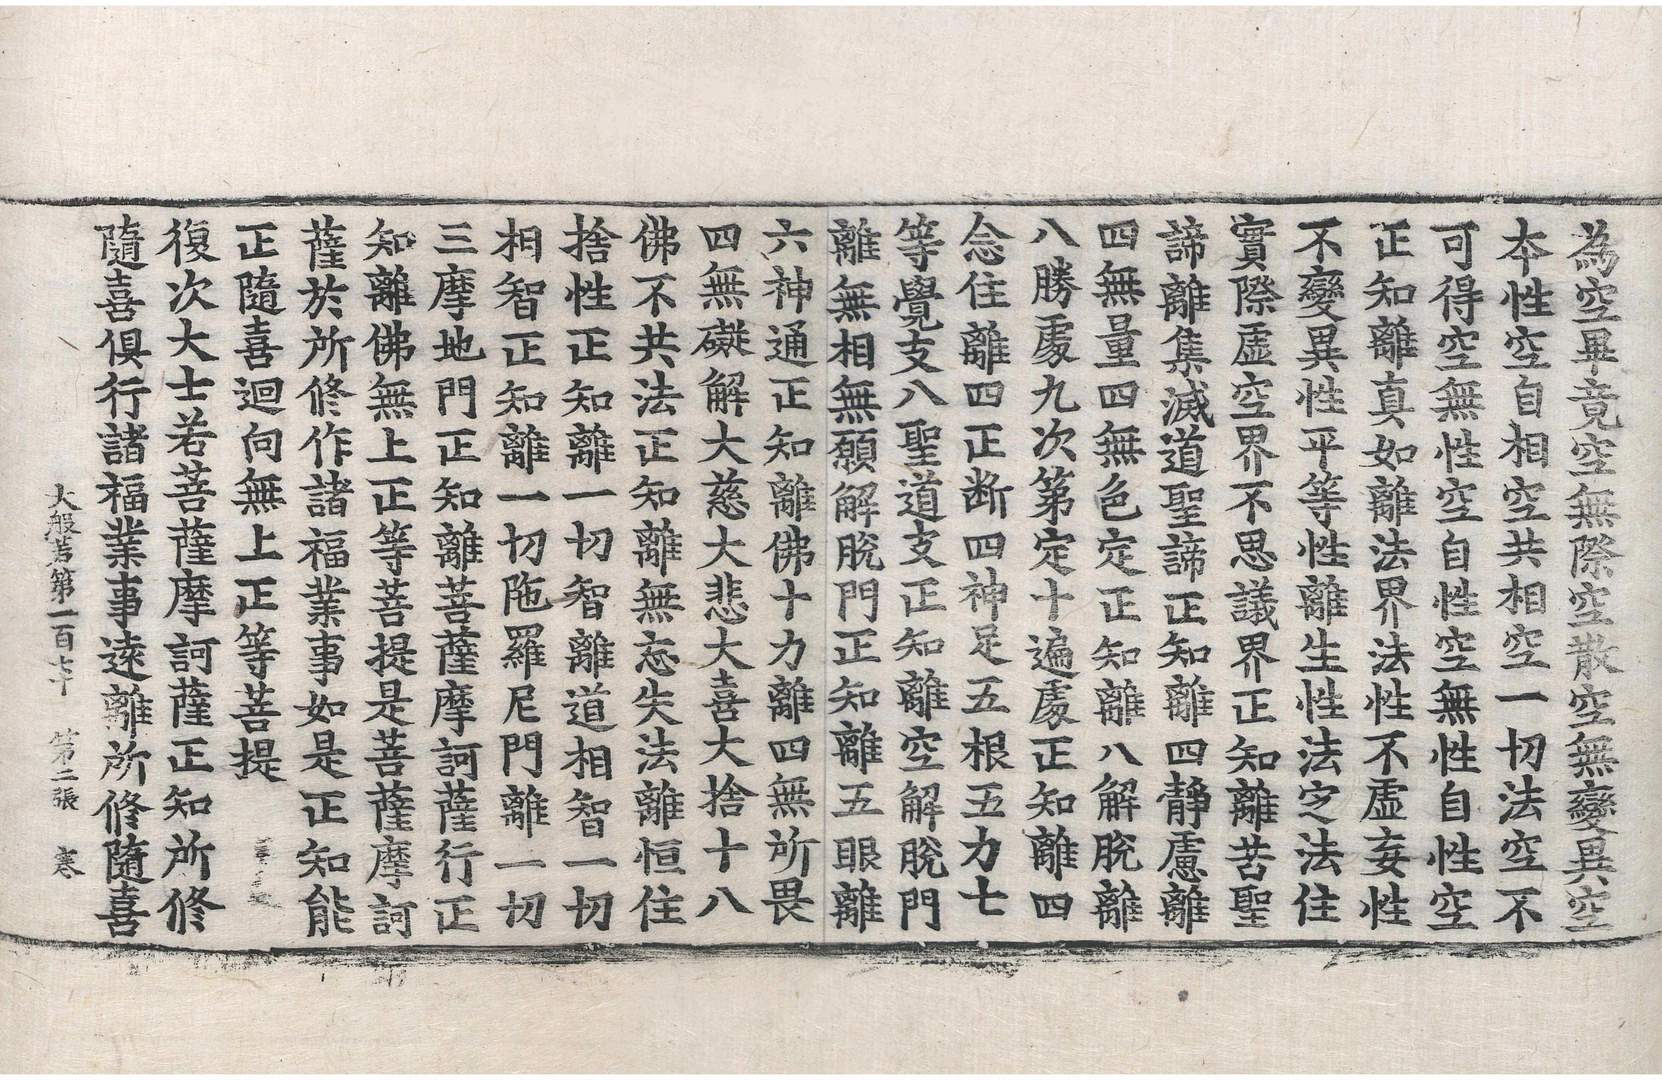 為空畢竟空無際空散空無變異空
本性空自相空共相空一切法空不
可得空無性空自性空無性自性空
正知離真如離法界法性不虛妄性
不變異性平等性離生性法定法住
實際虛空界不思議界正知離苦聖
諦離集滅道聖諦正知離四靜慮離
四無量四無色定正知離八解脫離
八勝處九次第定十遍處正知離四
念住離四正断四神足五根五力七
等覺支八聖道支正知離空解脫門
離無相無願解脫門正知離五眼離
六神通正知離佛十力離四無所畏
四無礙解大慈大悲大喜大捨十八
佛不共法正知離無忘失法離恒住
捨性正知離一切智離道相智一切
相智正知離一切陁羅尼門離一切
三摩地門正知離菩薩摩訶薩行正
知離佛無上正等菩提是菩薩摩訶
薩於所修作諸福業事如是正知能
正隨喜迴向無上正等菩提
復次大士若菩薩摩訶薩正知所修
隨喜俱行諸福業事遠離所修隨喜
大般若第一百七十 第二張 寒